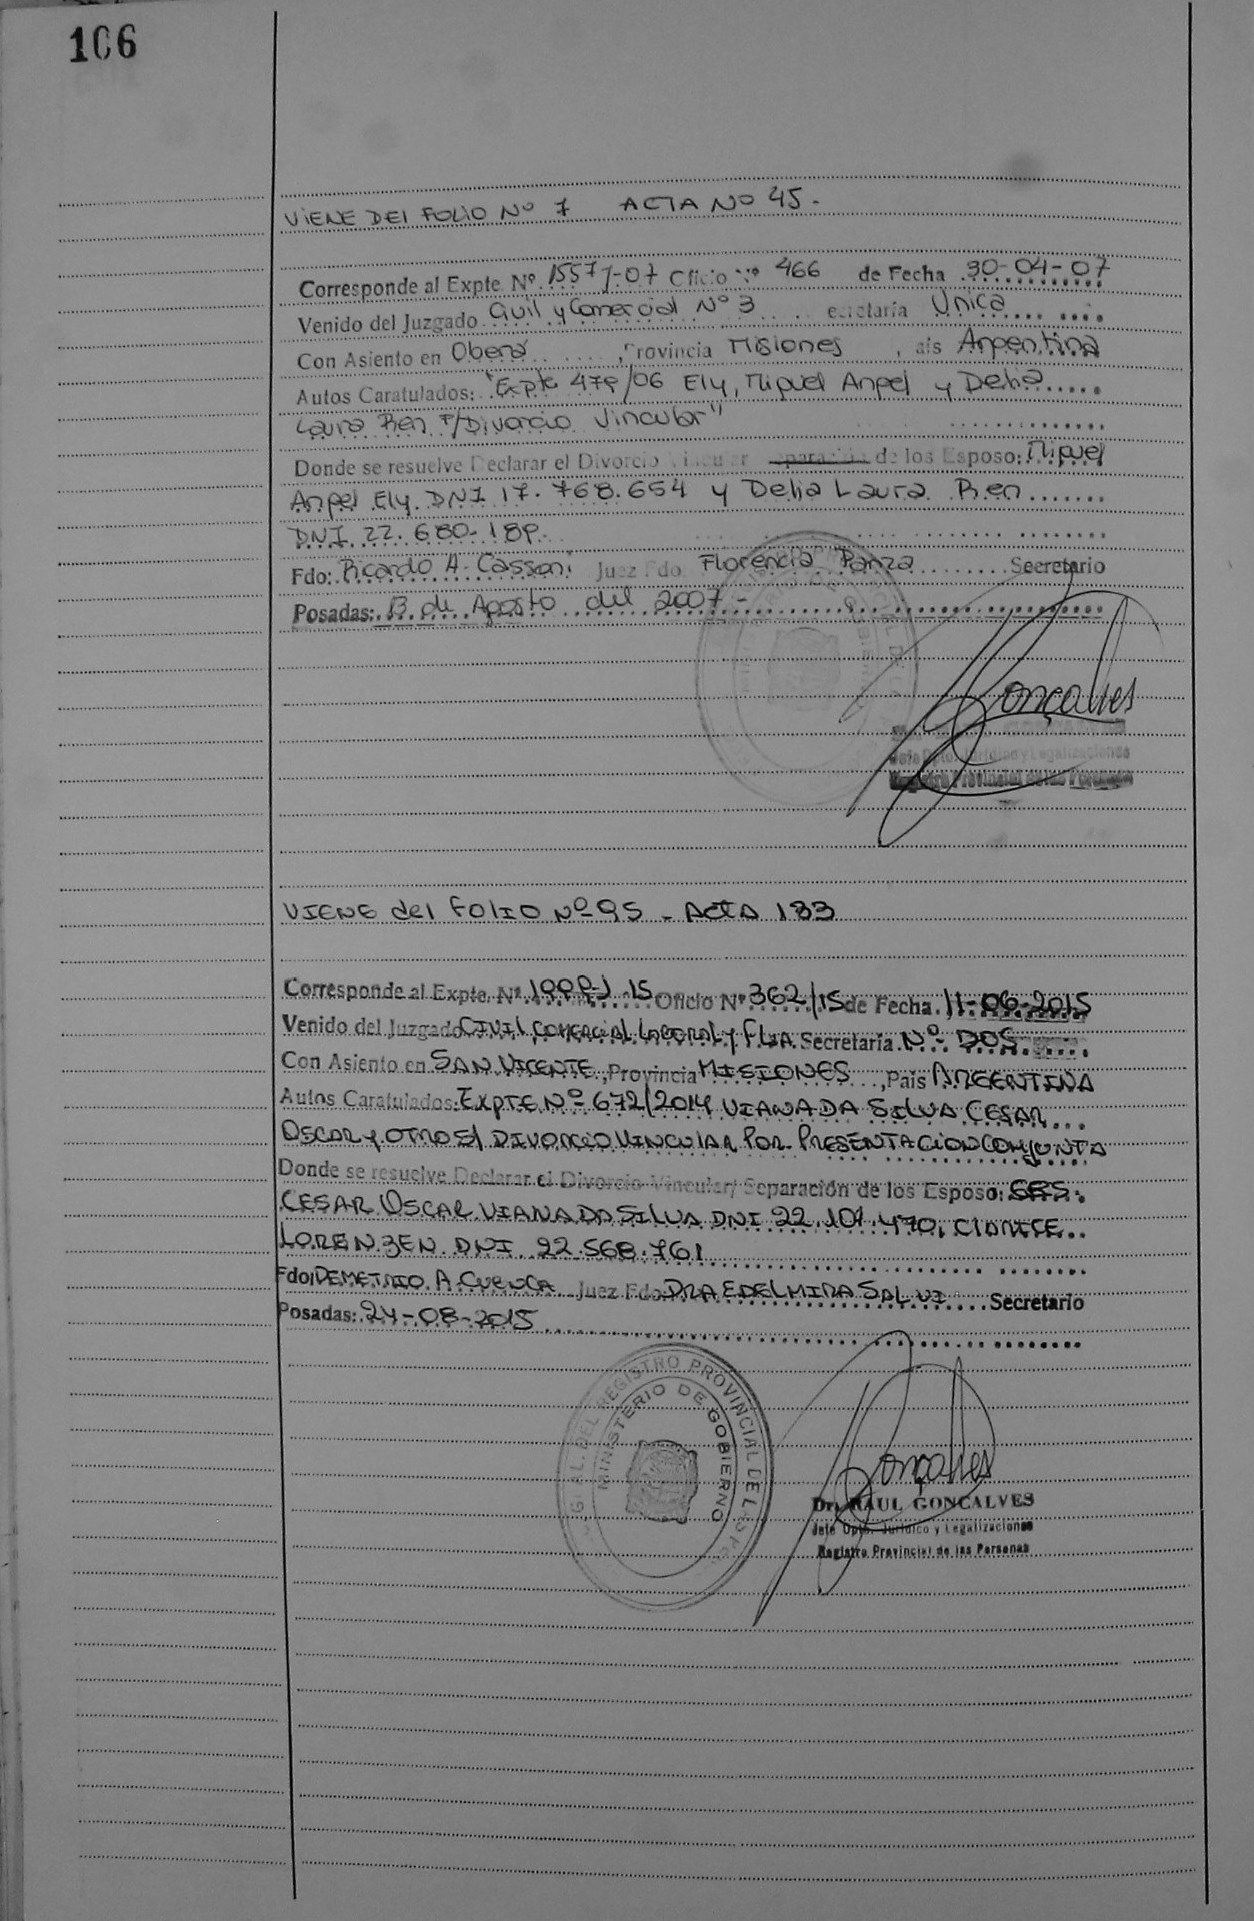 106
VIENE DEL FOLIO Nº 7 ACTA Nº 45.-
Corresponde al Expte. Nº. 1557J-07 Oficio Nº 466 de Fecha 30-04-07
Venido del Juzgado Civil y Comercial Nº 3 ecretaría Unica
Con Asiento en Oberá ,Provincia Misiones , ais Argentina
Autos Caratulados: "Expte 479/06 Ely, Miguel Angel y Delia
Laura Ren s/Divorcio Vincular"
Donde se resuelve Declarar el Divorcio Vincular eparación de los Esposo: Miguel
Angel Ely. DNI 17.768.654 y Delia Laura Ren
DNI. 22.680.189.
Fdo: Ricardo A. Cassoni Juez Fdo. Florencia Panza Secretario
Posadas: 13 de Agosto del 2007-
Gonçalves
Jefe Dpto. Jurídico y Legalizaciones
Registro Provincial de las Personas
VIENE del FOLIO Nº 95 - ACTA 183
Corresponde al Expte. Nº. 1999-J-15 Oficio Nº 362/15 de Fecha. 11-06-2015
Venido del Juzgado CIVIL COMERCIAL LABORAL y FLIA. Secretaría Nº DOS
Con Asiento en SAN VICENTE ,Provincia MISIONES ,País ARGENTINA
Autos Caratulados: EXPTE Nº 672/2014 VIANA DA SILVA CESAR
OSCAR y OTRO S/ DIVORCIO VINCULAR POR PRESENTACION CONJUNTA
Donde se resuelve Declarar el Divorcio Vincular/ Separación de los Esposo: SRS.
CESAR OSCAR VIANA DA SILVA DNI 22.101.470, CLARICE
LORENZEN DNI 22.568.761
Fdo: DEMETRIO A. CUENCA Juez Fdo: DRA EDELMIRA SALVI Secretario
Posadas: 24-08-2015
REGISTRO PROVINCIAL DE LAS PERS
MINISTERIO DE GOBIERNO
Gonçalves
Dr. RAUL GONCALVES
Jefe Dpto. Jurídico y Legalizaciones
Registro Provincial de las Personas